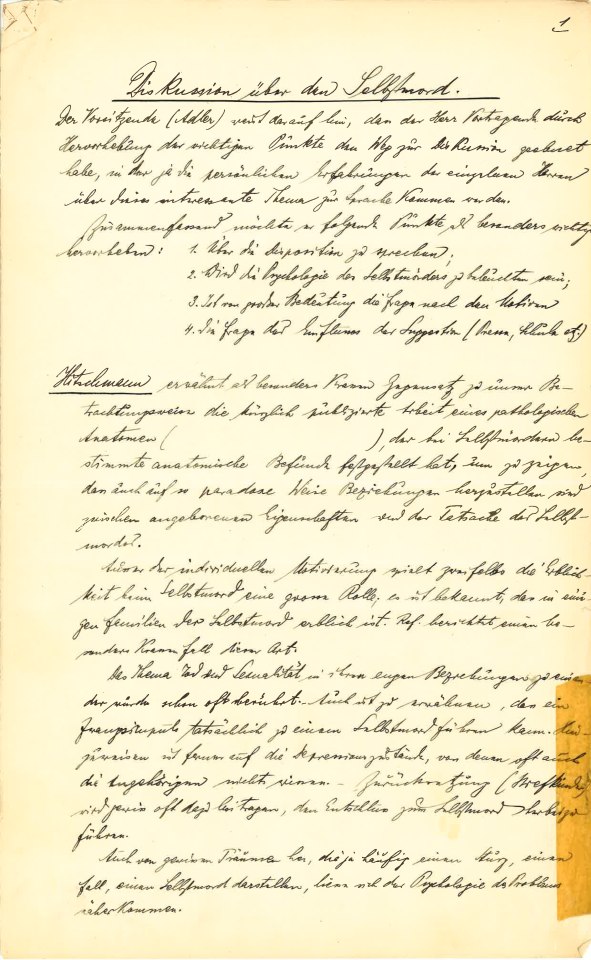 1
Diskussion über den Selbstmord.
Der Vorsitzende (Adler) weist darauf hin, dass der Herr Vortragende durch
Hervorhebung der wichtigen Punkte den Weg zur Diskussion geebnet
habe, in der ja die persönlichen Erfahrungen der einzelnen Herren
über dieses interessante Thema zur Sprache kommen werden.
Zusammenfassend möchte er folgende Punkte als besonders wichtig
hervorheben: 1. Über die Disposition zu sprechen;
2. Wird die Psychologie des Selbstmörders zu beleuchten sein;
3. Ist von großer Bedeutung die Frage nach den Motiven
4. Die Frage des Einflusses der Suggestion (Presse, Schule etc)
Hitschmann erwähnt als besonders krassen Gegensatz zu unserer Be-
trachtungsweise die kürzlich publizierte Arbeit eines pathologischen
Anatomen ( ), der bei Selbstmördern be-
stimmte anatomische Befunde festgestellt hat, um zu zeigen,
dass auch auf so paradoxe Weise Beziehungen herzustellen sind
zwischen angeborenen Eigenschaften und der Tatsache des Selbst-
mordes.
Ausser der individuellen Motivierung spielt zweifellos die Erblich-
keit beim Selbstmord eine grosse Rolle; es ist bekannt, das in eini-
gen Familien der Selbstmord erblich ist. Ref. berichtet einen be-
sonders krassen Fall dieser Art.
Das Thema Tod und Sexualität in ihren engen Beziehungen zu einan-
der wurde schon oft berührt. Auch ist zu erwähnen, das ein
Zwangsimpuls tatsächlich zu einem Selbstmord führen kann. Hin-
zuweisen ist ferner auf die Depressionszustände, von denen oft auch
die Angehörigen nichts wissen. – Zurücksetzung (Stiefkinder)
wird gewiss oft dazu beitragen, den Entschluss zum Selbstmord herbeizu-
führen.
Auch von gewissen Träumen her, die ja häufig einen Sturz, einen
Fall, einen Selbstmord darstellen, liesse sich der Psychologie des Problems
näher kommen.